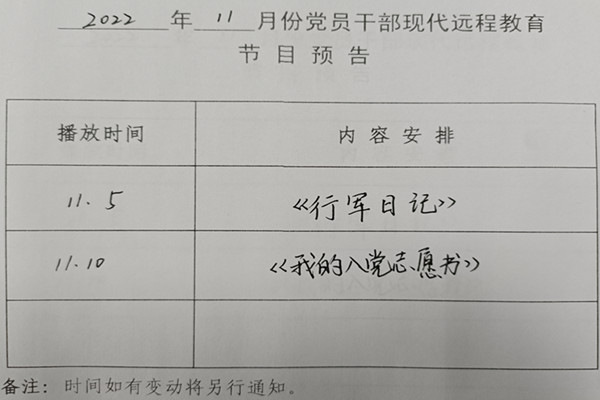 2022 年 11 月份党员干部现代远程教育
节目预告
播放时间 内容安排
11.5 《行军日记》
11.10 《我的入党志愿书》
备注：时间如有变动将另行通知。